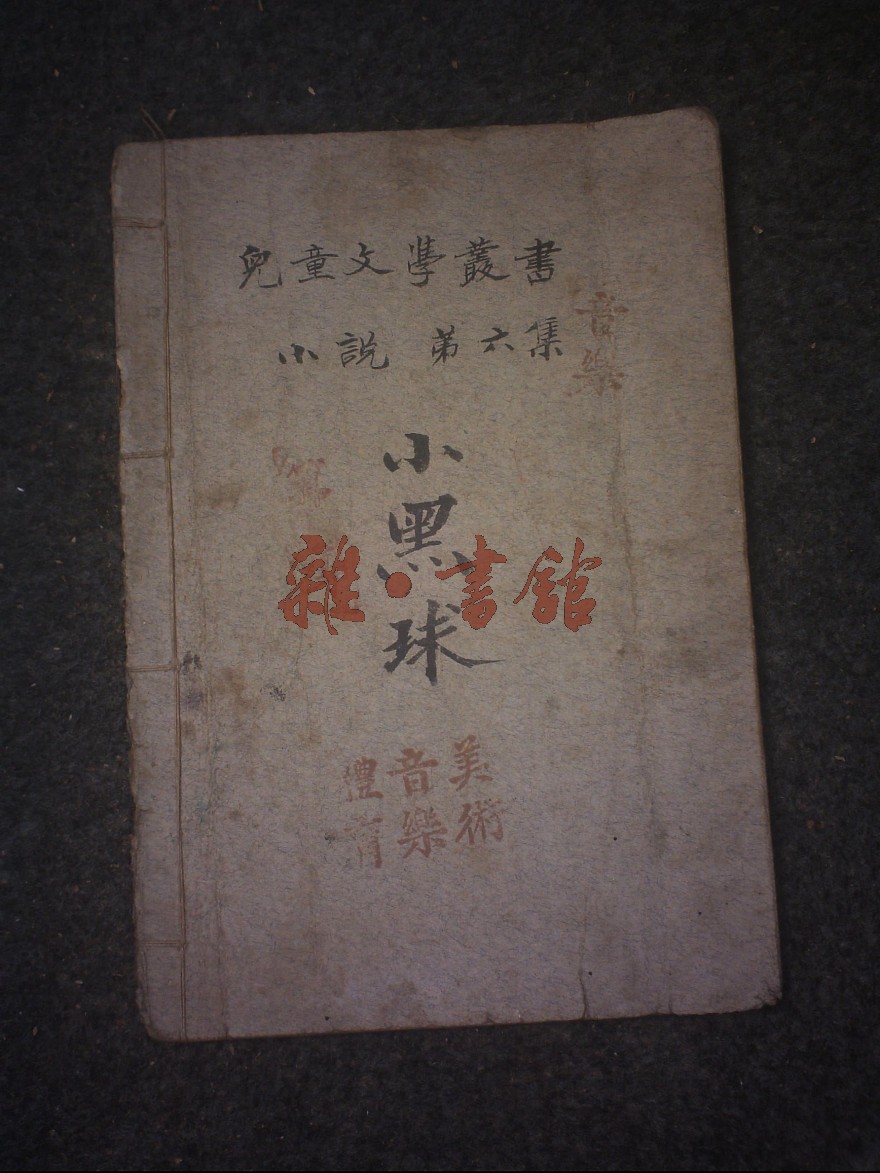 兒童文學叢書
小說 第六集
音樂
小黑球
雜·書館
體音美
育樂術